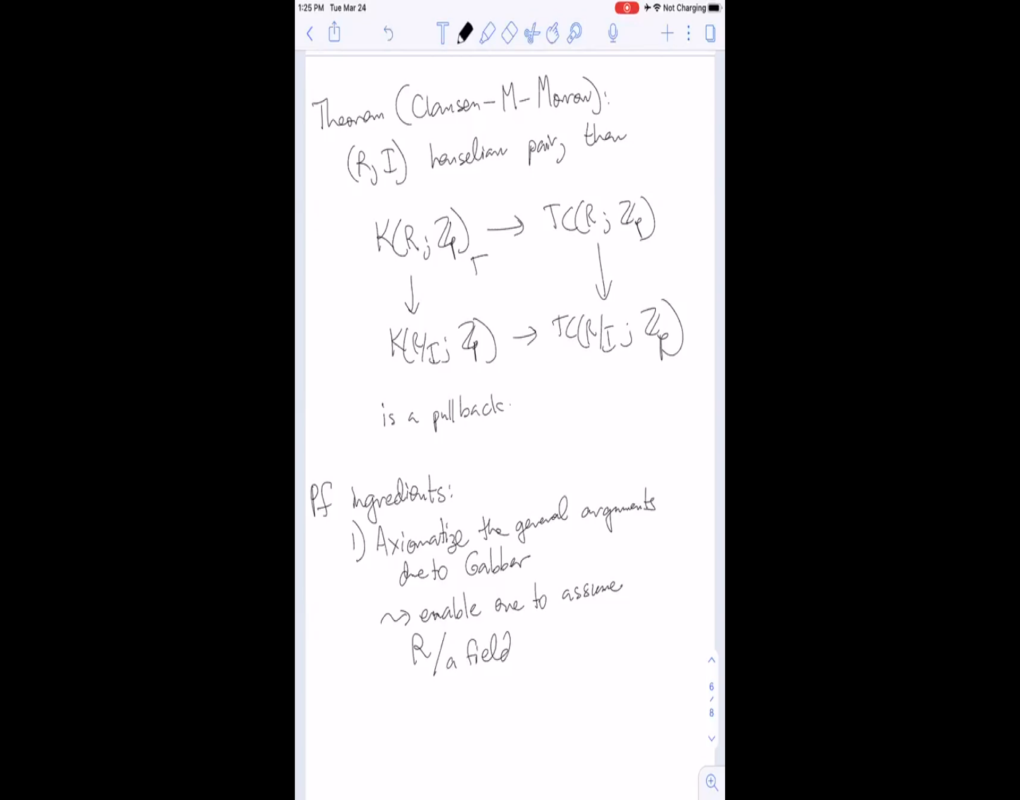 1:25 PM Tue Mar 24
Not Charging
Theorem (Clausen-M-Morrow):
(R, I) henselian pair, then
K(R; ℤₚ) → TC(R; ℤₚ)
↓ ↓
K(R/I; ℤₚ) → TC(R/I; ℤₚ)
is a pullback.
Pf ingredients:
1) Axiomatize the general arguments
due to Gabber
⇝ enable one to assume
R/a field
6
/
8